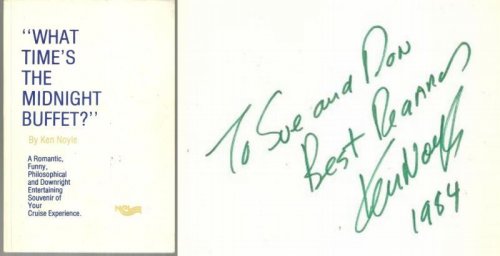 "WHAT
TIME'S
THE
MIDNIGHT
BUFFET?"
By Ken Noyle
A Romantic,
Funny,
Philosophical
and Downright
Entertaining
Souvenir of
Your
Cruise Experience.
To Sue and Don
Best Regards
Ken Noyle
1984